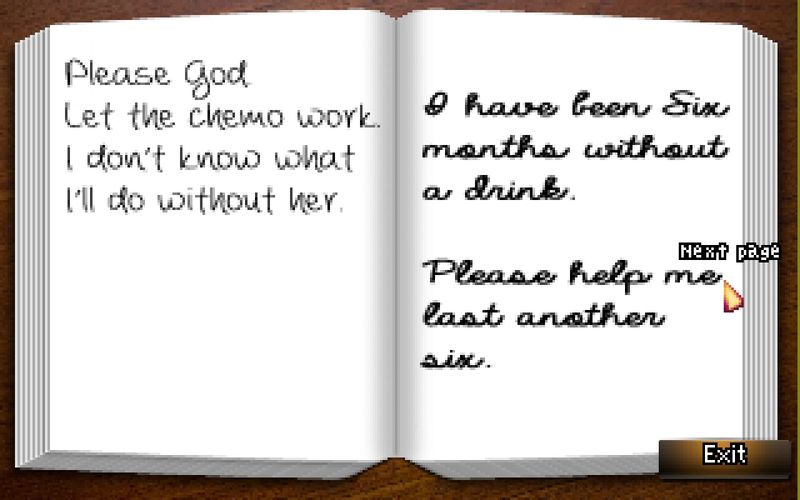 Please God
Let the chemo work.
I don't know what
I'll do without her.
I have been Six
months without
a drink.
Please help me
last another
six.
Next page
Exit